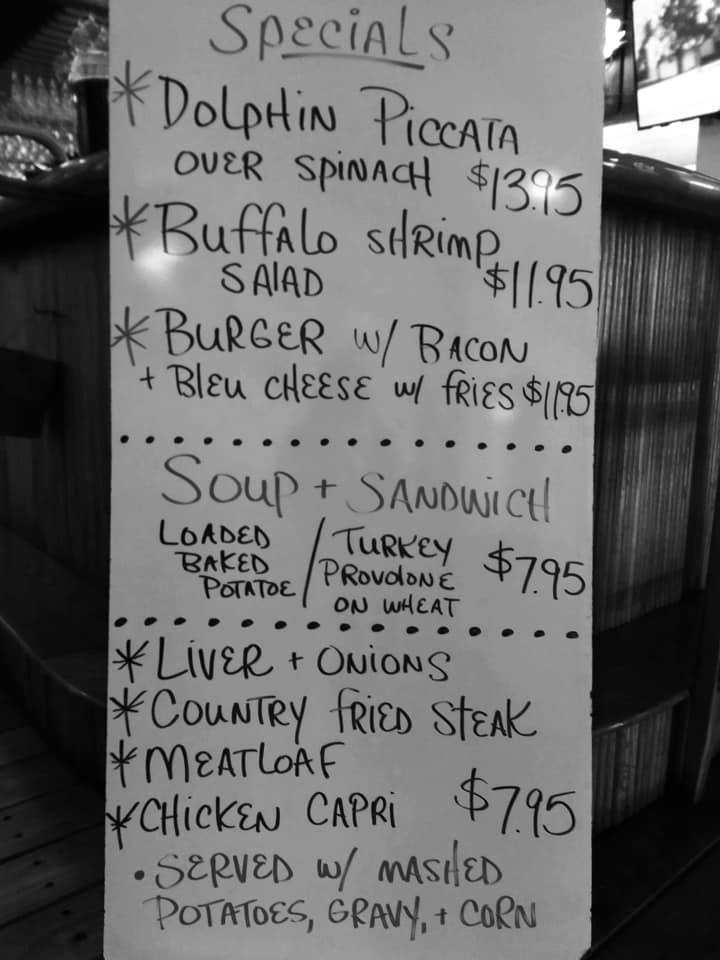 SPECIALS
* DOLPHIN PICCATA
OVER SPINACH $13.95
* BUFFALO SHRIMP
SALAD $11.95
* BURGER W/ BACON
+ BLEU CHEESE W/ FRIES $11.95
SOUP + SANDWICH
LOADED BAKED POTATOE / TURKEY PROVOLONE ON WHEAT $7.95
* LIVER + ONIONS
* COUNTRY FRIED STEAK
* MEATLOAF
* CHICKEN CAPRI $7.95
• SERVED W/ MASHED
POTATOES, GRAVY, + CORN